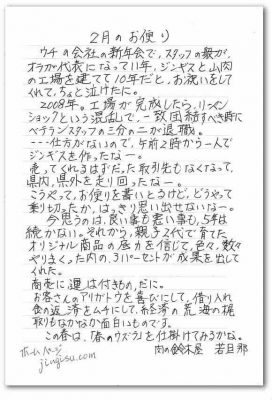 2月のお便り
ウチの会社の新年会で、スタッフの皆が、
オラが代表になって11年、ジンギスと山肉
の工場を建てて10年だと、お祝いをして
くれて、ちょと泣けたに。
2008年。工場が完成したら、リーマン
ショックという混乱で、一致団結すべき時に
ベテランスタッフの三分の二が退職。
---仕方がないので、午前2時から一人で
ジンギスを作ったなー。
売ってくれるはずだった取引先もなくなって、
県内、県外を走り回ったなー。
こうやって、お便りを書いとるけど、どうやって
乗り切ったか、はっきり思い出せないなー。
今思うのは、良い事も悪い事も、5年は
続かない。それから、親子2代で育てた
オリジナル商品の底力を信じて、色々、数々
やりまくった内の、3パーセントが成果を出して
くれた。
商売に運は付きもの、だに。
お客さんのアリガトウを喜びにして、借り入れ
金の返済をムチにして、経済の荒海の梶
取りもなかなか面白いものです。
この春は、「春のウズラ」を仕掛けてみるかな。
ホームページ
jingisu.com
肉の鈴木屋 若旦那